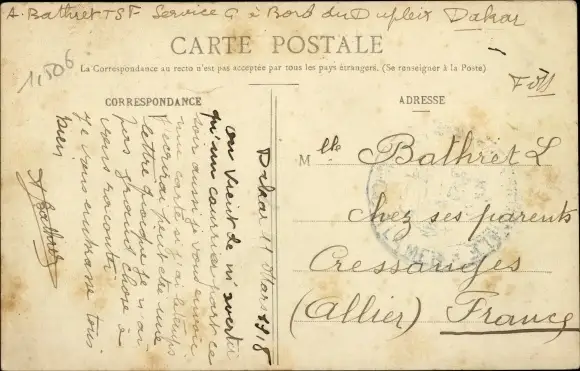 A. Bathret TSF Service G à Bord du Dupleix Dakar
CARTE POSTALE
La Correspondance au recto n'est pas acceptée par tous les pays étrangers. (Se renseigner à la Poste)
1,506
CORRESPONDANCE
ADRESSE
Dakar 11 Mars 1918
on vient de m'avertir
qu'un courrier part ce
soir aussi je vous envoie
une carte si j'ai le temps
j'écrirai peut être une
lettre quoique je n'ai
pas grand chose à
vous raconter
je vous embrasse tous
bien
A Bathret
Mlle Bathret L
chez ses parents
Cressanges
(Allier) France